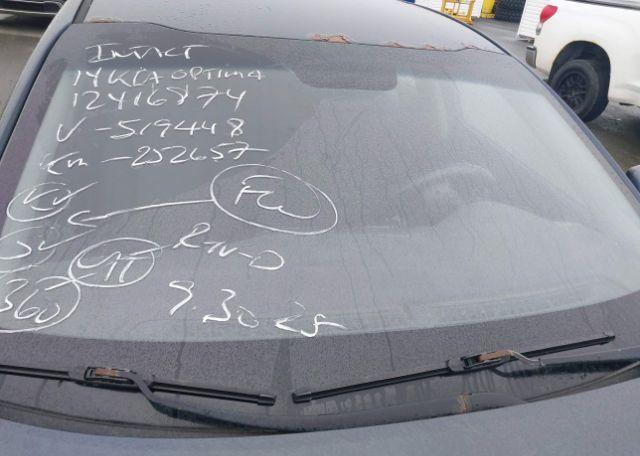 INTACT
14 KIA OPTIMA
12416874
V-519448
Km-252657
FW
R-N-D
360
9.30 25